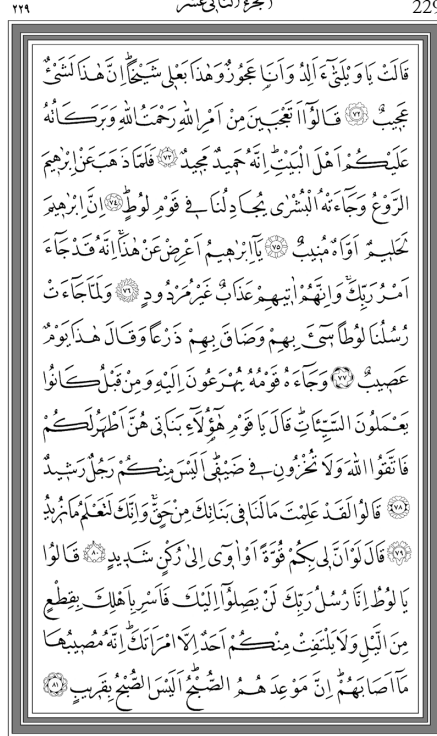 ٢٢٩ الجزء الثاني عشر 229
قَالَتْ يَا وَيْلَتٰٓى ءَاَلِدُ وَاَنَا۬ عَجُوزٌ وَهٰذَا بَعْل۪ي شَيْخًاۜ اِنَّ هٰذَا لَشَيْءٌ
عَج۪يبٌ ﴿٧٢﴾ قَالُٓوا اَتَعْجَب۪ينَ مِنْ اَمْرِ اللّٰهِ رَحْمَتُ اللّٰهِ وَبَرَكَاتُهُ
عَلَيْكُمْ اَهْلَ الْبَيْتِۜ اِنَّهُ حَم۪يدٌ مَج۪يدٌ ﴿٧٣﴾ فَلَمَّا ذَهَبَ عَنْ اِبْرٰه۪يمَ
الرَّوْعُ وَجَٓاءَتْهُ الْبُشْرٰى يُجَادِلُنَا ف۪ي قَوْمِ لُوطٍۜ ﴿٧٤﴾ اِنَّ اِبْرٰه۪يمَ
لَحَل۪يمٌ اَوَّاهٌ مُن۪يبٌ ﴿٧٥﴾ يَٓا اِبْرٰه۪يمُ اَعْرِضْ عَنْ هٰذَاۚ اِنَّهُ قَدْ جَٓاءَ
اَمْرُ رَبِّكَۚ وَاِنَّهُمْ اٰت۪يهِمْ عَذَابٌ غَيْرُ مَرْدُودٍ ﴿٧٦﴾ وَلَمَّا جَٓاءَتْ
رُسُلُنَا لُوطًا س۪ٓيءَ بِهِمْ وَضَاقَ بِهِمْ ذَرْعًا وَقَالَ هٰذَا يَوْمٌ
عَص۪يبٌ ﴿٧٧﴾ وَجَٓاءَهُ قَوْمُهُ يُهْرَعُونَ اِلَيْهِ وَمِنْ قَبْلُ كَانُوا
يَعْمَلُونَ السَّيِّـَٔاتِۜ قَالَ يَا قَوْمِ هٰٓؤُ۬لَٓاءِ بَنَات۪ي هُنَّ اَطْهَرُ لَكُمْ
فَاتَّقُوا اللّٰهَ وَلَا تُخْزُونِ ف۪ي ضَيْف۪يۜ اَلَيْسَ مِنْكُمْ رَجُلٌ رَش۪يدٌ
﴿٧٨﴾ قَالُوا لَقَدْ عَلِمْتَ مَا لَنَا ف۪ي بَنَاتِكَ مِنْ حَقٍّۚ وَاِنَّكَ لَتَعْلَمُ مَا نُر۪يدُ
﴿٧٩﴾ قَالَ لَوْ اَنَّ ل۪ي بِكُمْ قُوَّةً اَوْ اٰو۪ٓي اِلٰى رُكْنٍ شَد۪يدٍ ﴿٨٠﴾ قَالُوا
يَا لُوطُ اِنَّا رُسُلُ رَبِّكَ لَنْ يَصِلُٓوا اِلَيْكَ فَاَسْرِ بِاَهْلِكَ بِقِطْعٍ
مِنَ الَّيْلِ وَلَا يَلْتَفِتْ مِنْكُمْ اَحَدٌ اِلَّا امْرَاَتَكَۜ اِنَّهُ مُص۪يبُهَا
مَٓا اَصَابَهُمْۜ اِنَّ مَوْعِدَهُمُ الصُّبْحُۜ اَلَيْسَ الصُّبْحُ بِقَر۪يبٍ ﴿٨١﴾